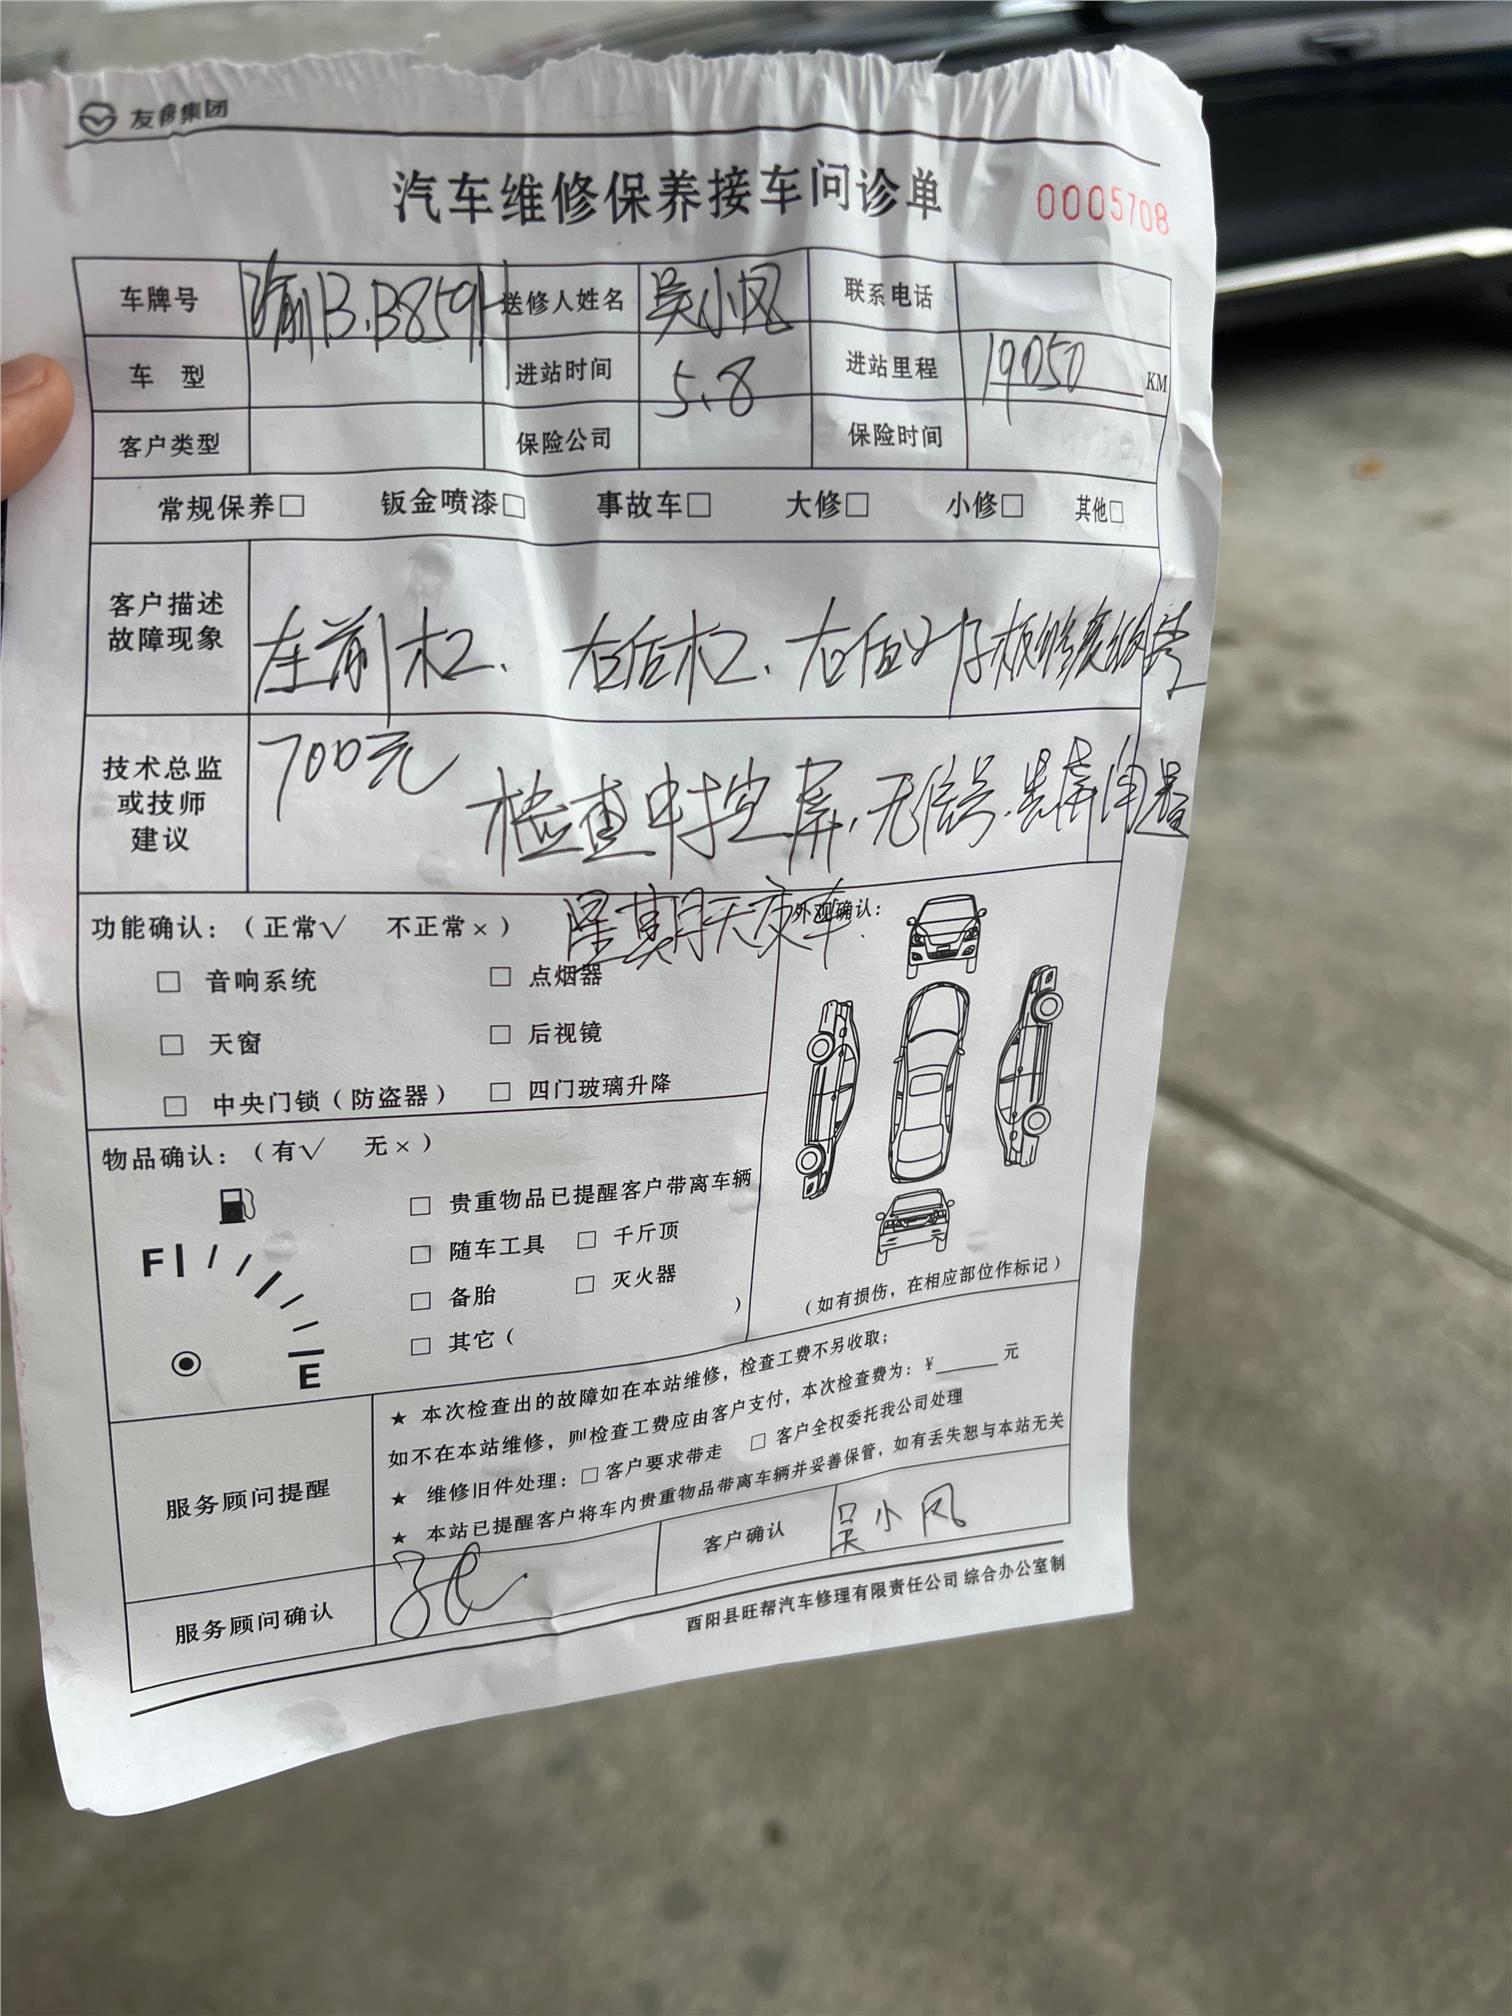 友帮集团
汽车维修保养接车问诊单 0005708
车牌号 渝B.B859H 送修人姓名 吴小凤 联系电话
车 型 进站时间 5.8 进站里程 19050 KM
客户类型 保险公司 保险时间
常规保养□ 钣金喷漆□ 事故车□ 大修□ 小修□ 其他□
客户描述
故障现象
左前杠、右后杠、右后叶子板修复
技术总监
或技师
建议
700元
检查中控屏、无信号、黑屏
星期天交车.
功能确认：（正常√ 不正常×） 外观确认：
□ 音响系统 □ 点烟器
□ 天窗 □ 后视镜
□ 中央门锁（防盗器） □ 四门玻璃升降
物品确认：（有√ 无×）
□ 贵重物品已提醒客户带离车辆
□ 随车工具 □ 千斤顶
□ 备胎 □ 灭火器
□ 其它（ ）
F
E
（如有损伤，在相应部位作标记）
服务顾问提醒
★ 本次检查出的故障如在本站维修，检查工费不另收取；
如不在本站维修，则检查工费应由客户支付，本次检查费为：¥______元
★ 维修旧件处理：□ 客户要求带走 □ 客户全权委托我公司处理
★ 本站已提醒客户将车内贵重物品带离车辆并妥善保管，如有丢失恕与本站无关
服务顾问确认 客户确认 吴小凤
酉阳县旺帮汽车修理有限责任公司 综合办公室制